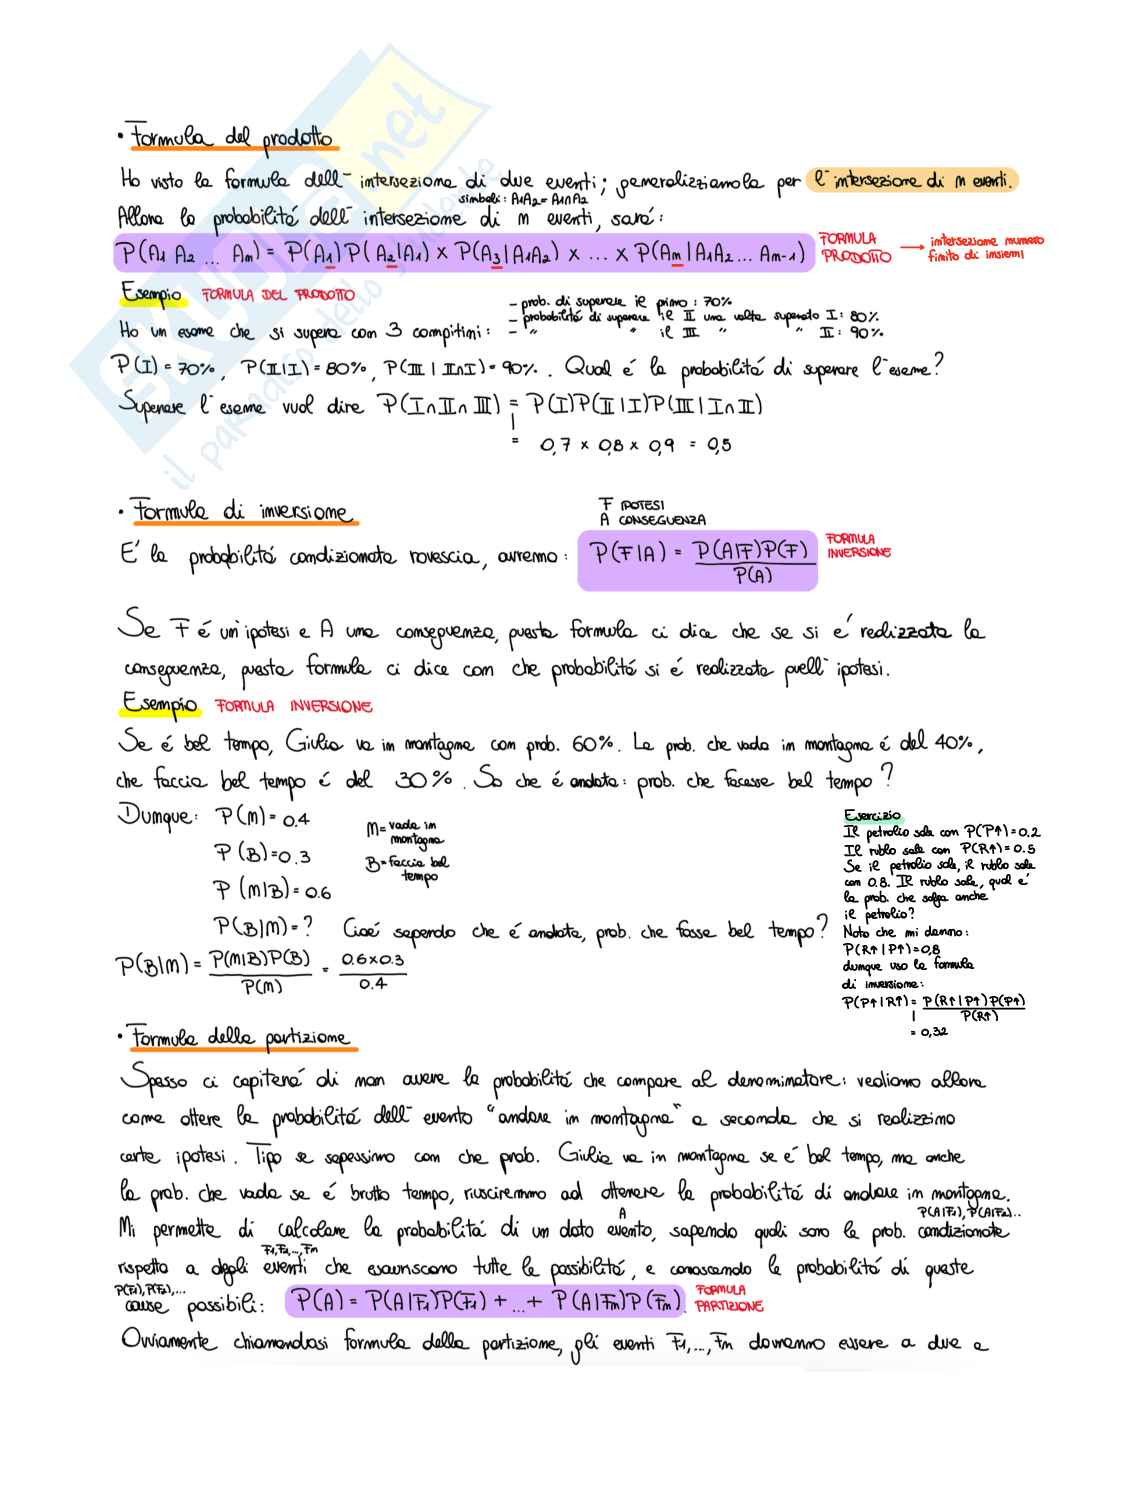 • Formula del prodotto
Ho visto la formula dell'intersezione di due eventi; generalizziamola per l'intersezione di n eventi.
simboli: A1A2 = A1∩A2
Allora la probabilità dell'intersezione di n eventi, sará:
P(A1 A2 ... An) = P(A1) P(A2|A1) × P(A3|A1A2) × ... × P(An|A1A2... An-1)
FORMULA PRODOTTO → intersezione numero finito di insiemi
Esempio FORMULA DEL PRODOTTO
Ho un esame che si supera con 3 compitini:
- prob. di superare il primo: 70%
- probabilitá di superare il II una volta superato I: 80%
- " " il III " " II: 90%
P(I) = 70%, P(II|I) = 80%, P(III | II∩I) = 90%. Qual é la probabilitá di superare l'esame?
Superare l'esame vuol dire P(I∩II∩III) = P(I)P(II|I)P(III|I∩II)
= 0,7 × 0,8 × 0,9 = 0,5
• Formula di inversione
F IPOTESI
A CONSEGUENZA
E' la probabilitá condizionata rovescia, avremo: P(F|A) = P(A|F)P(F) / P(A)
FORMULA INVERSIONE
Se F é un'ipotesi e A una conseguenza, questa formula ci dice che se si e' realizzata la
conseguenza, questa formula ci dice con che probabilitá si é realizzata quell'ipotesi.
Esempio FORMULA INVERSIONE
Se é bel tempo, Giulia va in montagna con prob. 60%. La prob. che vada in montagna é del 40%,
che faccia bel tempo é del 30%. So che é andata: prob. che facesse bel tempo?
Dunque: P(M) = 0.4
P(B) = 0.3
P(M|B) = 0.6
M = vada in montagna
B = faccia bel tempo
P(B|M) = ? Cioé sapendo che é andata, prob. che fosse bel tempo?
P(B|M) = P(M|B)P(B) / P(M) = 0.6×0.3 / 0.4
Esercizio
Il petrolio sale con P(P↑) = 0.2
Il rublo sale con P(R↑) = 0.5
Se il petrolio sale, il rublo sale
con 0.8. Il rublo sale, qual e'
la prob. che salga anche
il petrolio?
Noto che mi danno:
P(R↑|P↑) = 0,8
dunque uso la formula
di inversione:
P(P↑|R↑) = P(R↑|P↑)P(P↑) / P(R↑)
= 0,32
• Formula della partizione
Spesso ci capiterá di non avere la probabilitá che compare al denominatore: vediamo allora
come ottere la probabilitá dell'evento "andare in montagna" a seconda che si realizzino
certe ipotesi. Tipo se sapessimo con che prob. Giulia va in montagna se e' bel tempo, ma anche
la prob. che vada se é brutto tempo, riusciremmo ad ottenere la probabilitá di andare in montagna.
A P(A|F1), P(A|F2)...
Mi permette di calcolare la probabilitá di un dato evento, sapendo quali sono le prob. condizionate
F1, F2, ..., Fn
rispetto a degli eventi che esauriscono tutte le possibilitá, e conoscendo le probabilitá di queste
P(F1), P(F2), ...
cause possibili: P(A) = P(A|F1)P(F1) + ... + P(A|Fn)P(Fn).
FORMULA PARTIZIONE
Ovviamente chiamandosi formula della partizione, gli eventi F1, ..., Fn dovranno essere a due a
SKUOLA.net
il paradiso dello studente